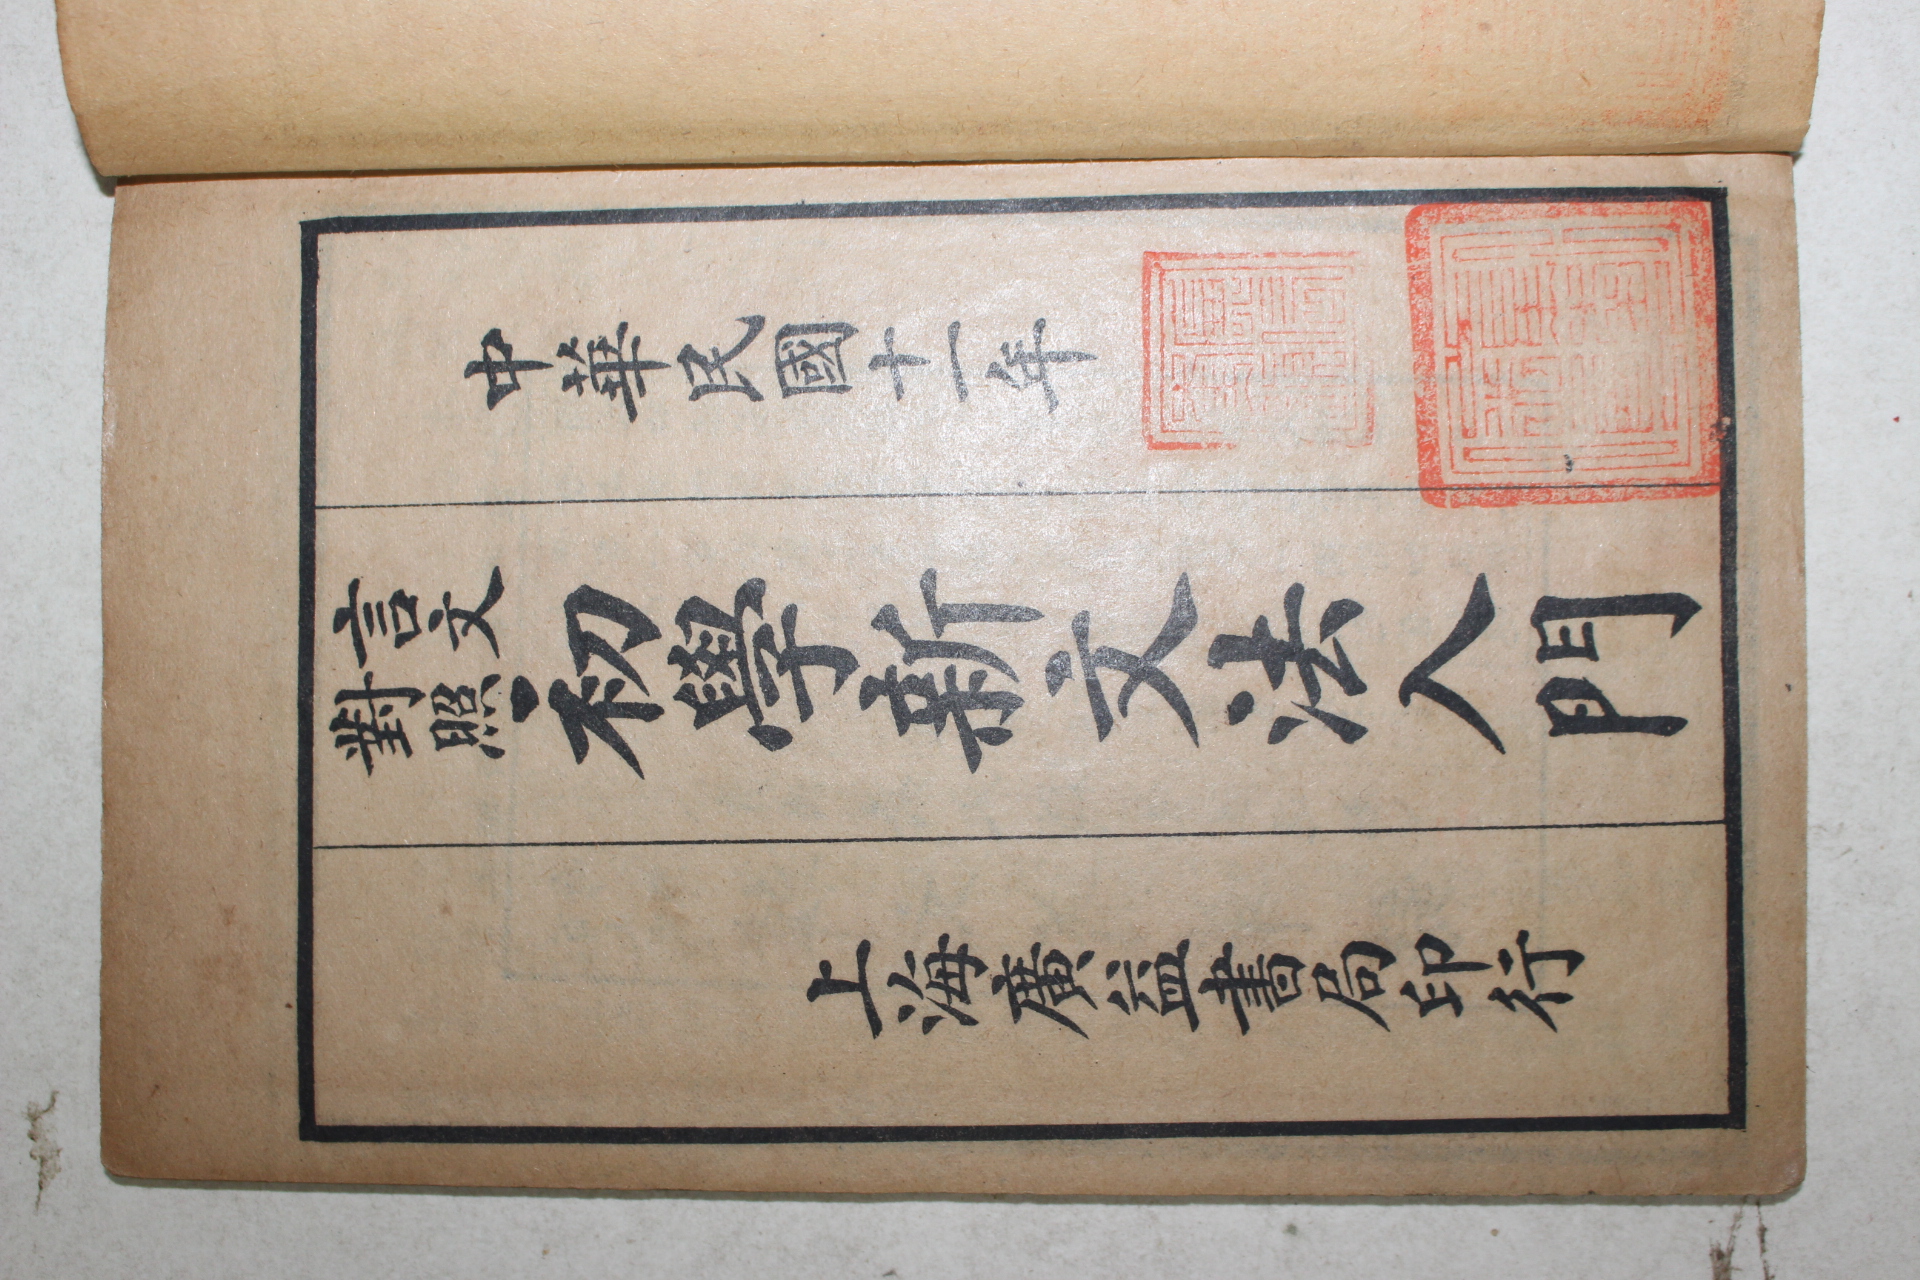 中華民國十一年
言文
對照
初學新文法入門
上海廣益書局印行